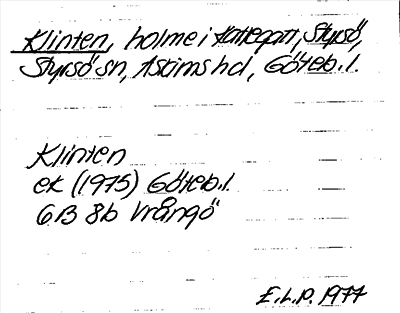 Klinten, holme i Kattegatt, Styrsö,
Styrsö sn, Askims hd, Göteb. l.
Klinten
ek (1975) Göteb. l.
6B 8b Vrångö
E.L.P. 1977